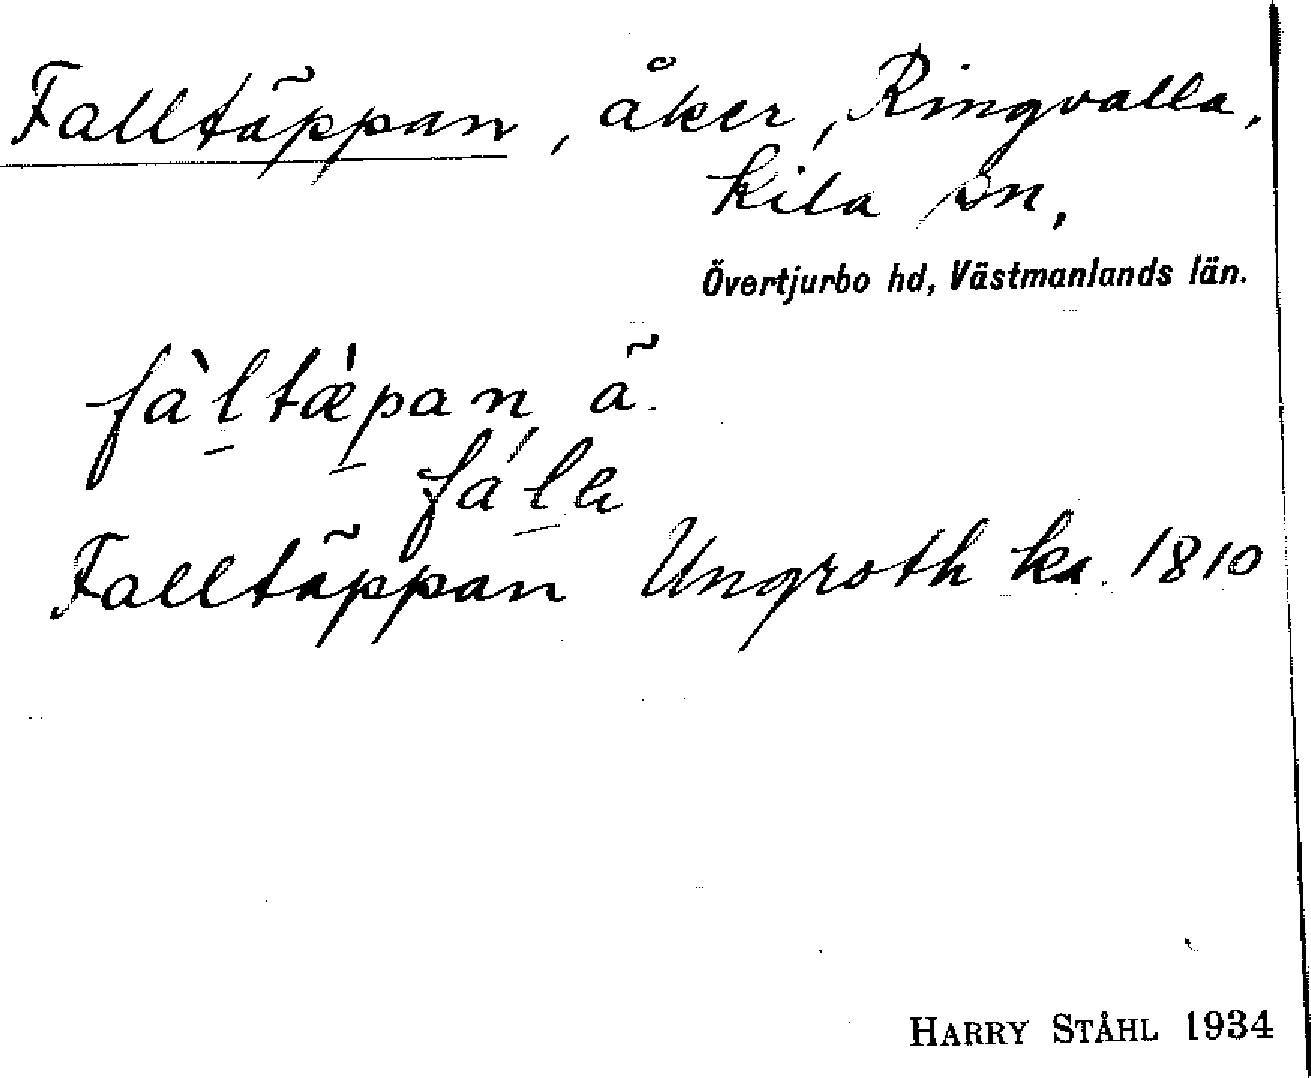 Falltäppan, åker, Ringvalla,
Kila sn,
Övertjurbo hd, Västmanlands län.
fàl̠tæ̀p̠an, ä.
fál̠a
Falltäppan Ungroth ka. 1810
HARRY STÅHL 1934